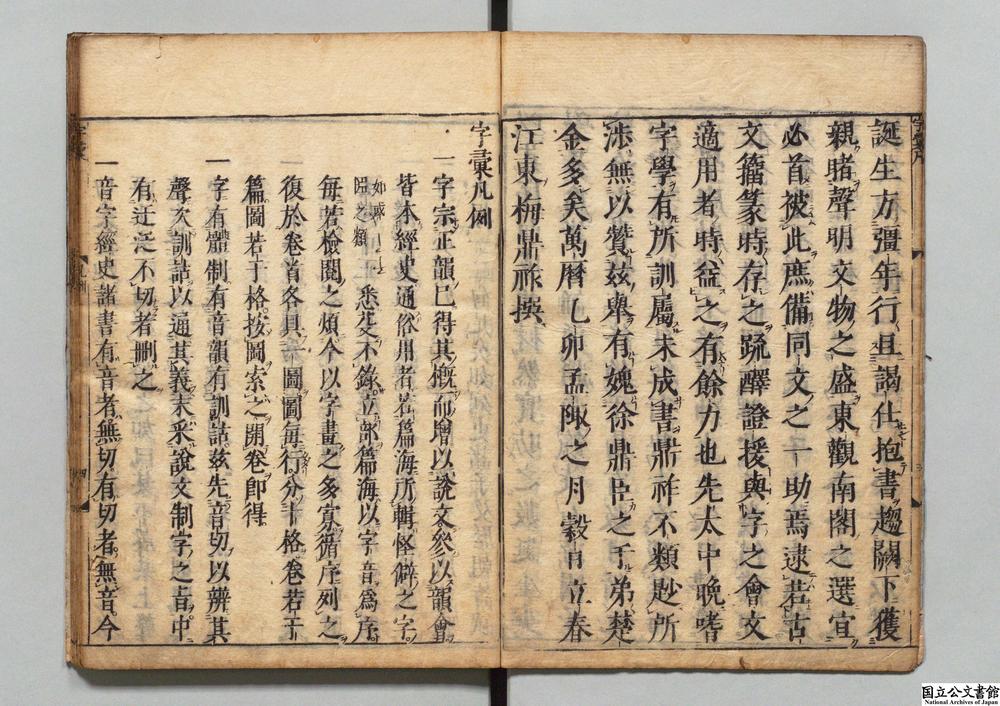 誕生方彊年行且謁仕抱書趨闕下獲
親睹聲明文物之盛東觀南閣之選宜
必首被此庶備同文之一助焉逮若古
文籀篆時存之疏醳證援與字之會文
適用者時益之有餘力也先太中晩嗜
字學有所訓屬未成書鼎祚不類尠所
渉無以贊玆舉有媿徐鼎臣之于弟楚
金多矣萬曆乙卯孟陬之月穀日立春
江東梅鼎祚撰
字彙凡例
一字宗正韻已得其槪而增以說文參以韻會
皆本經史通俗用者若篇海所輯怪僻之字
悉芟不錄立部篇海以字音爲序
每若檢閱之煩今以字畫之多寡循序列之
復於卷首各具一圖圖每行分十格卷若干
篇圖若干格按圖索之開卷卽得
一字有體制有音韻有訓詁玆先音切以辨其
聲次訓詁以通其義末采說文制字之旨中
有迂泛不切者刪之
一音字經史諸書有音者無切有切者無音今
国立公文書館
National Archives of Japan